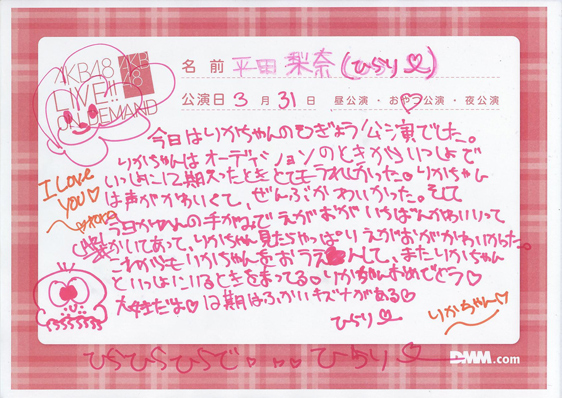 AKB48
LIVE!!
ON DEMAND
AKB
48
名前 平田 梨奈(ひらり♡)
公演日 3 月 31 日 ・ 昼公演 ・ おやつ公演 ・ 夜公演
今日はりかちゃんのそつぎょう公演でした。
りかちゃんはオーディションのときからいっしょで
いっしょに12期入ったときとてもうれしかった。りかちゃん
は声がかわいくて、ぜんぶかわいかった。そして
今日かちゃんの手がみでえがおがいちばんかわいいって
かいてあって、りかちゃん見たらやっぱりえがおがかわいかった。
これからもりかちゃんをおうえんして、またりかちゃん
といっしょにいるときをまってる♡りかちゃんおめでとう♡
大好きだよ♡12期はふかいキズナがある♡
ひらり
I Love
YOU♡
りかちゃん♡
ひらひらひらで・・・ひらり
DMM.com